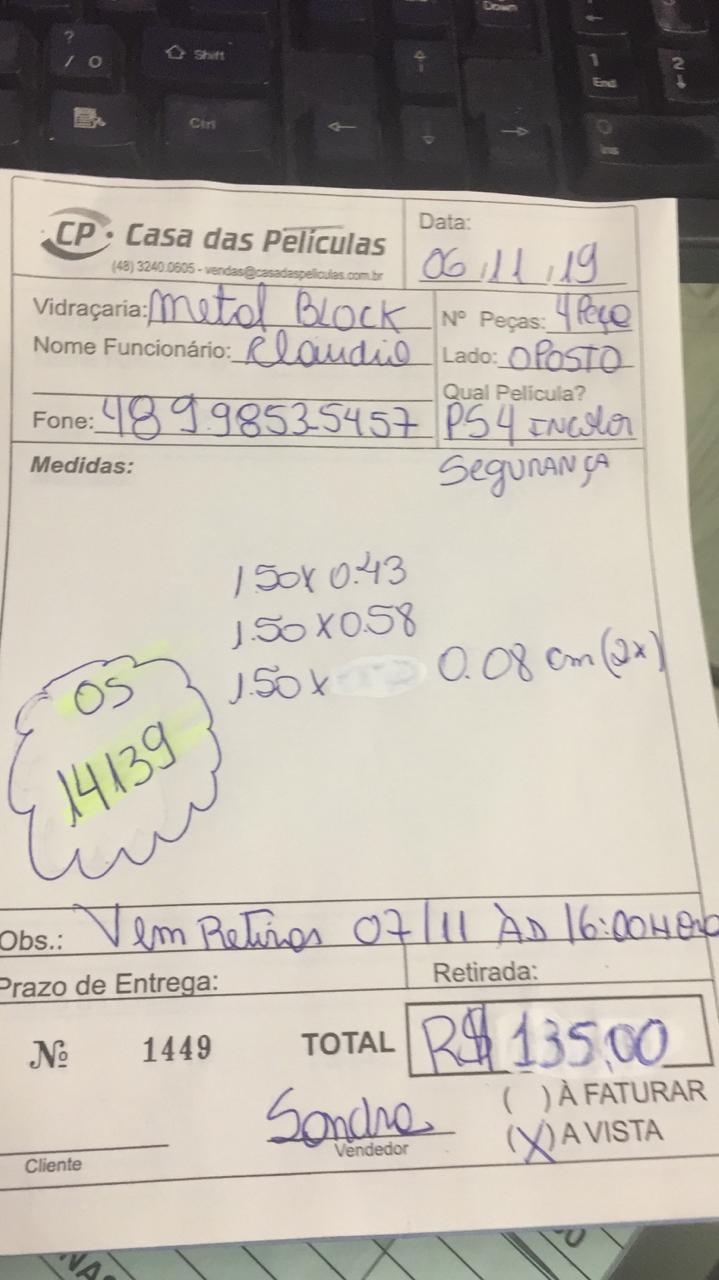 Down
?
/ O
Shift
Ctrl
1
End
2
O
Ins
CP Casa das Películas
(48) 3240.0605 - vendas@casadaspeliculas.com.br
Data:
06/11/19
Vidraçaria: Metal Block
Nº Peças: 4 Peça
Nome Funcionário: Claudio
Lado: OPOSTO
Qual Película?
Fone: 489.98535457
PS4 INCOLOR
SEGURANÇA
Medidas:
1.50 x 0.43
1.50 x 0.58
1.50 x 0.08 cm (2x)
OS
14139
Obs.: Vem Retirar 07/11 ÀS 16:00
Prazo de Entrega:
Retirada:
Nº 1449
TOTAL R$ 135,00
( ) À FATURAR
(X) A VISTA
Sandra
Vendedor
Cliente